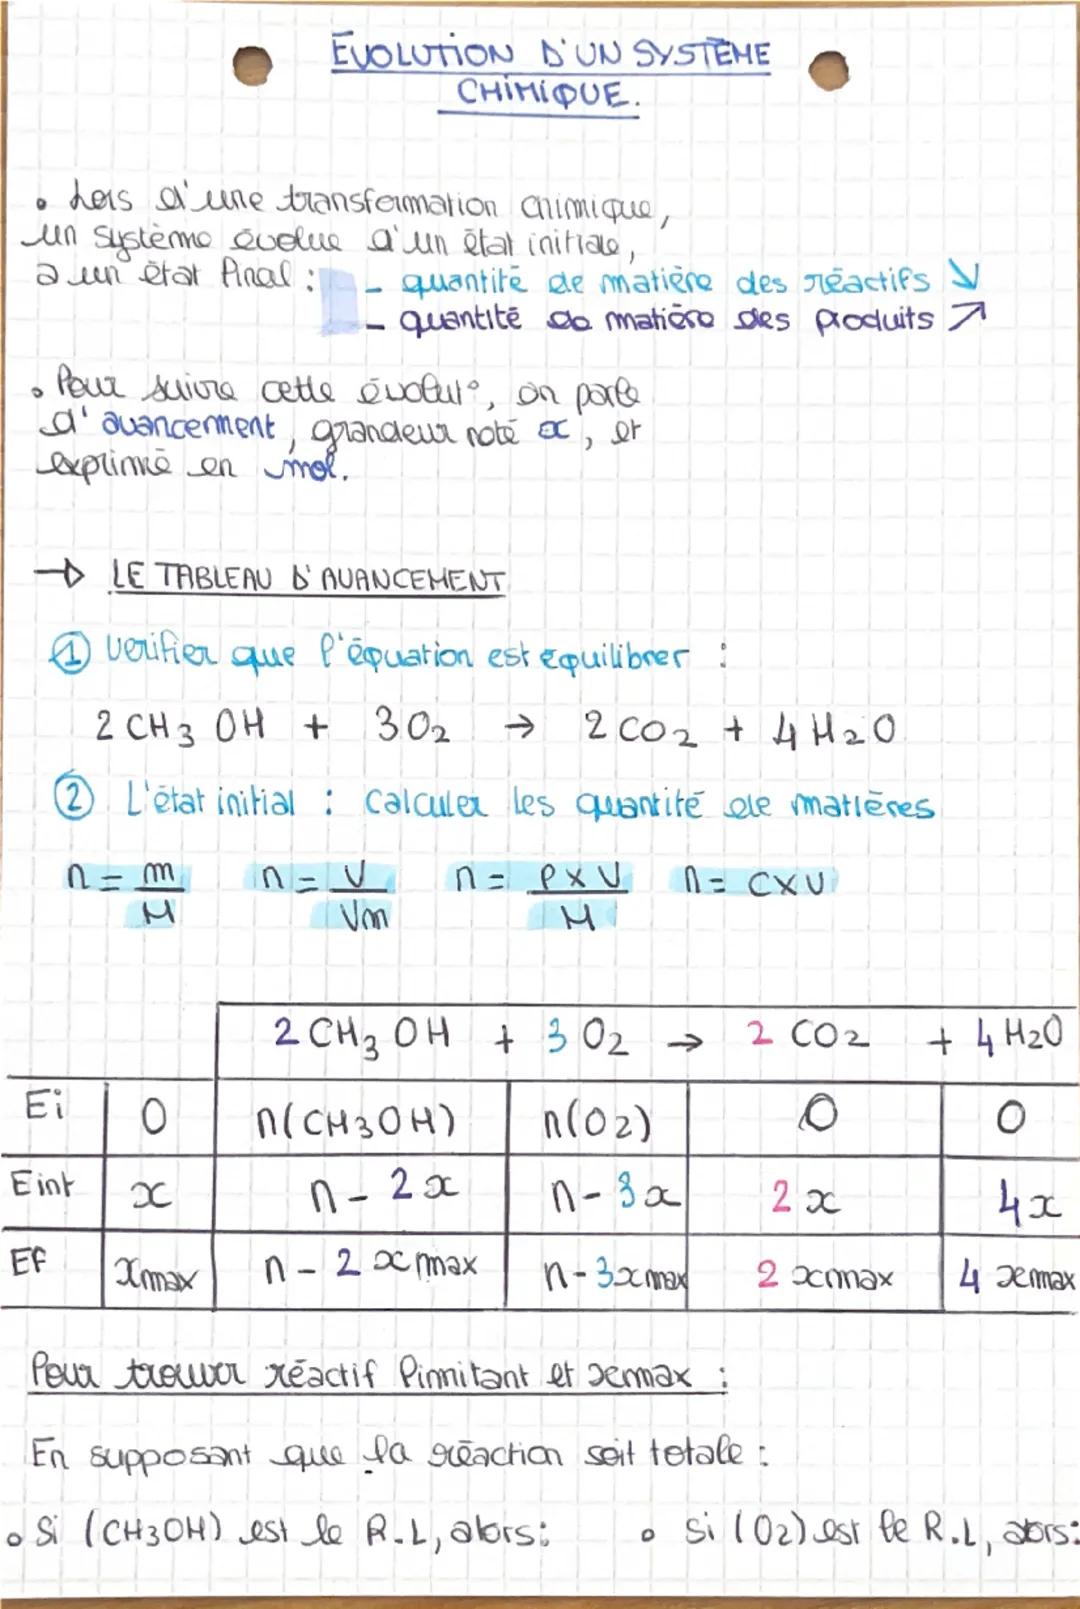 EVOLUTION D'UN SYSTÈME
CHIMIQUE.
• Lors d'une transformation chimique,
un système évolue d'un état initiale,
a un état final : - quantité de matière des réactifs ↘
- quantité de matière des produits ↗
• Pour suivre cette évolut°, on parle
d'avancement, grandeur noté x, et
exprimé en mol.
→ LE TABLEAU D'AVANCEMENT
① verifier que l'équation est équilibrer :
2 CH3 OH + 3 O2 → 2 CO2 + 4 H2O
② L'état initial : calculer les quantité de matières
n = m/M n = V/Vm n = ρ x V/M n = C x V
2 CH3 OH + 3 O2 → 2 CO2 + 4 H2O
Ei 0 n(CH3OH) n(O2) 0 0
E int x n - 2x n - 3x 2x 4x
EF xmax n - 2 xmax n - 3xmax 2 xmax 4 xmax
Pour trouver réactif linnitant et xemax :
En supposant que la réaction soit totale :
• Si (CH3OH) est le R.L, alors: • Si (O2) est le R.L, alors: